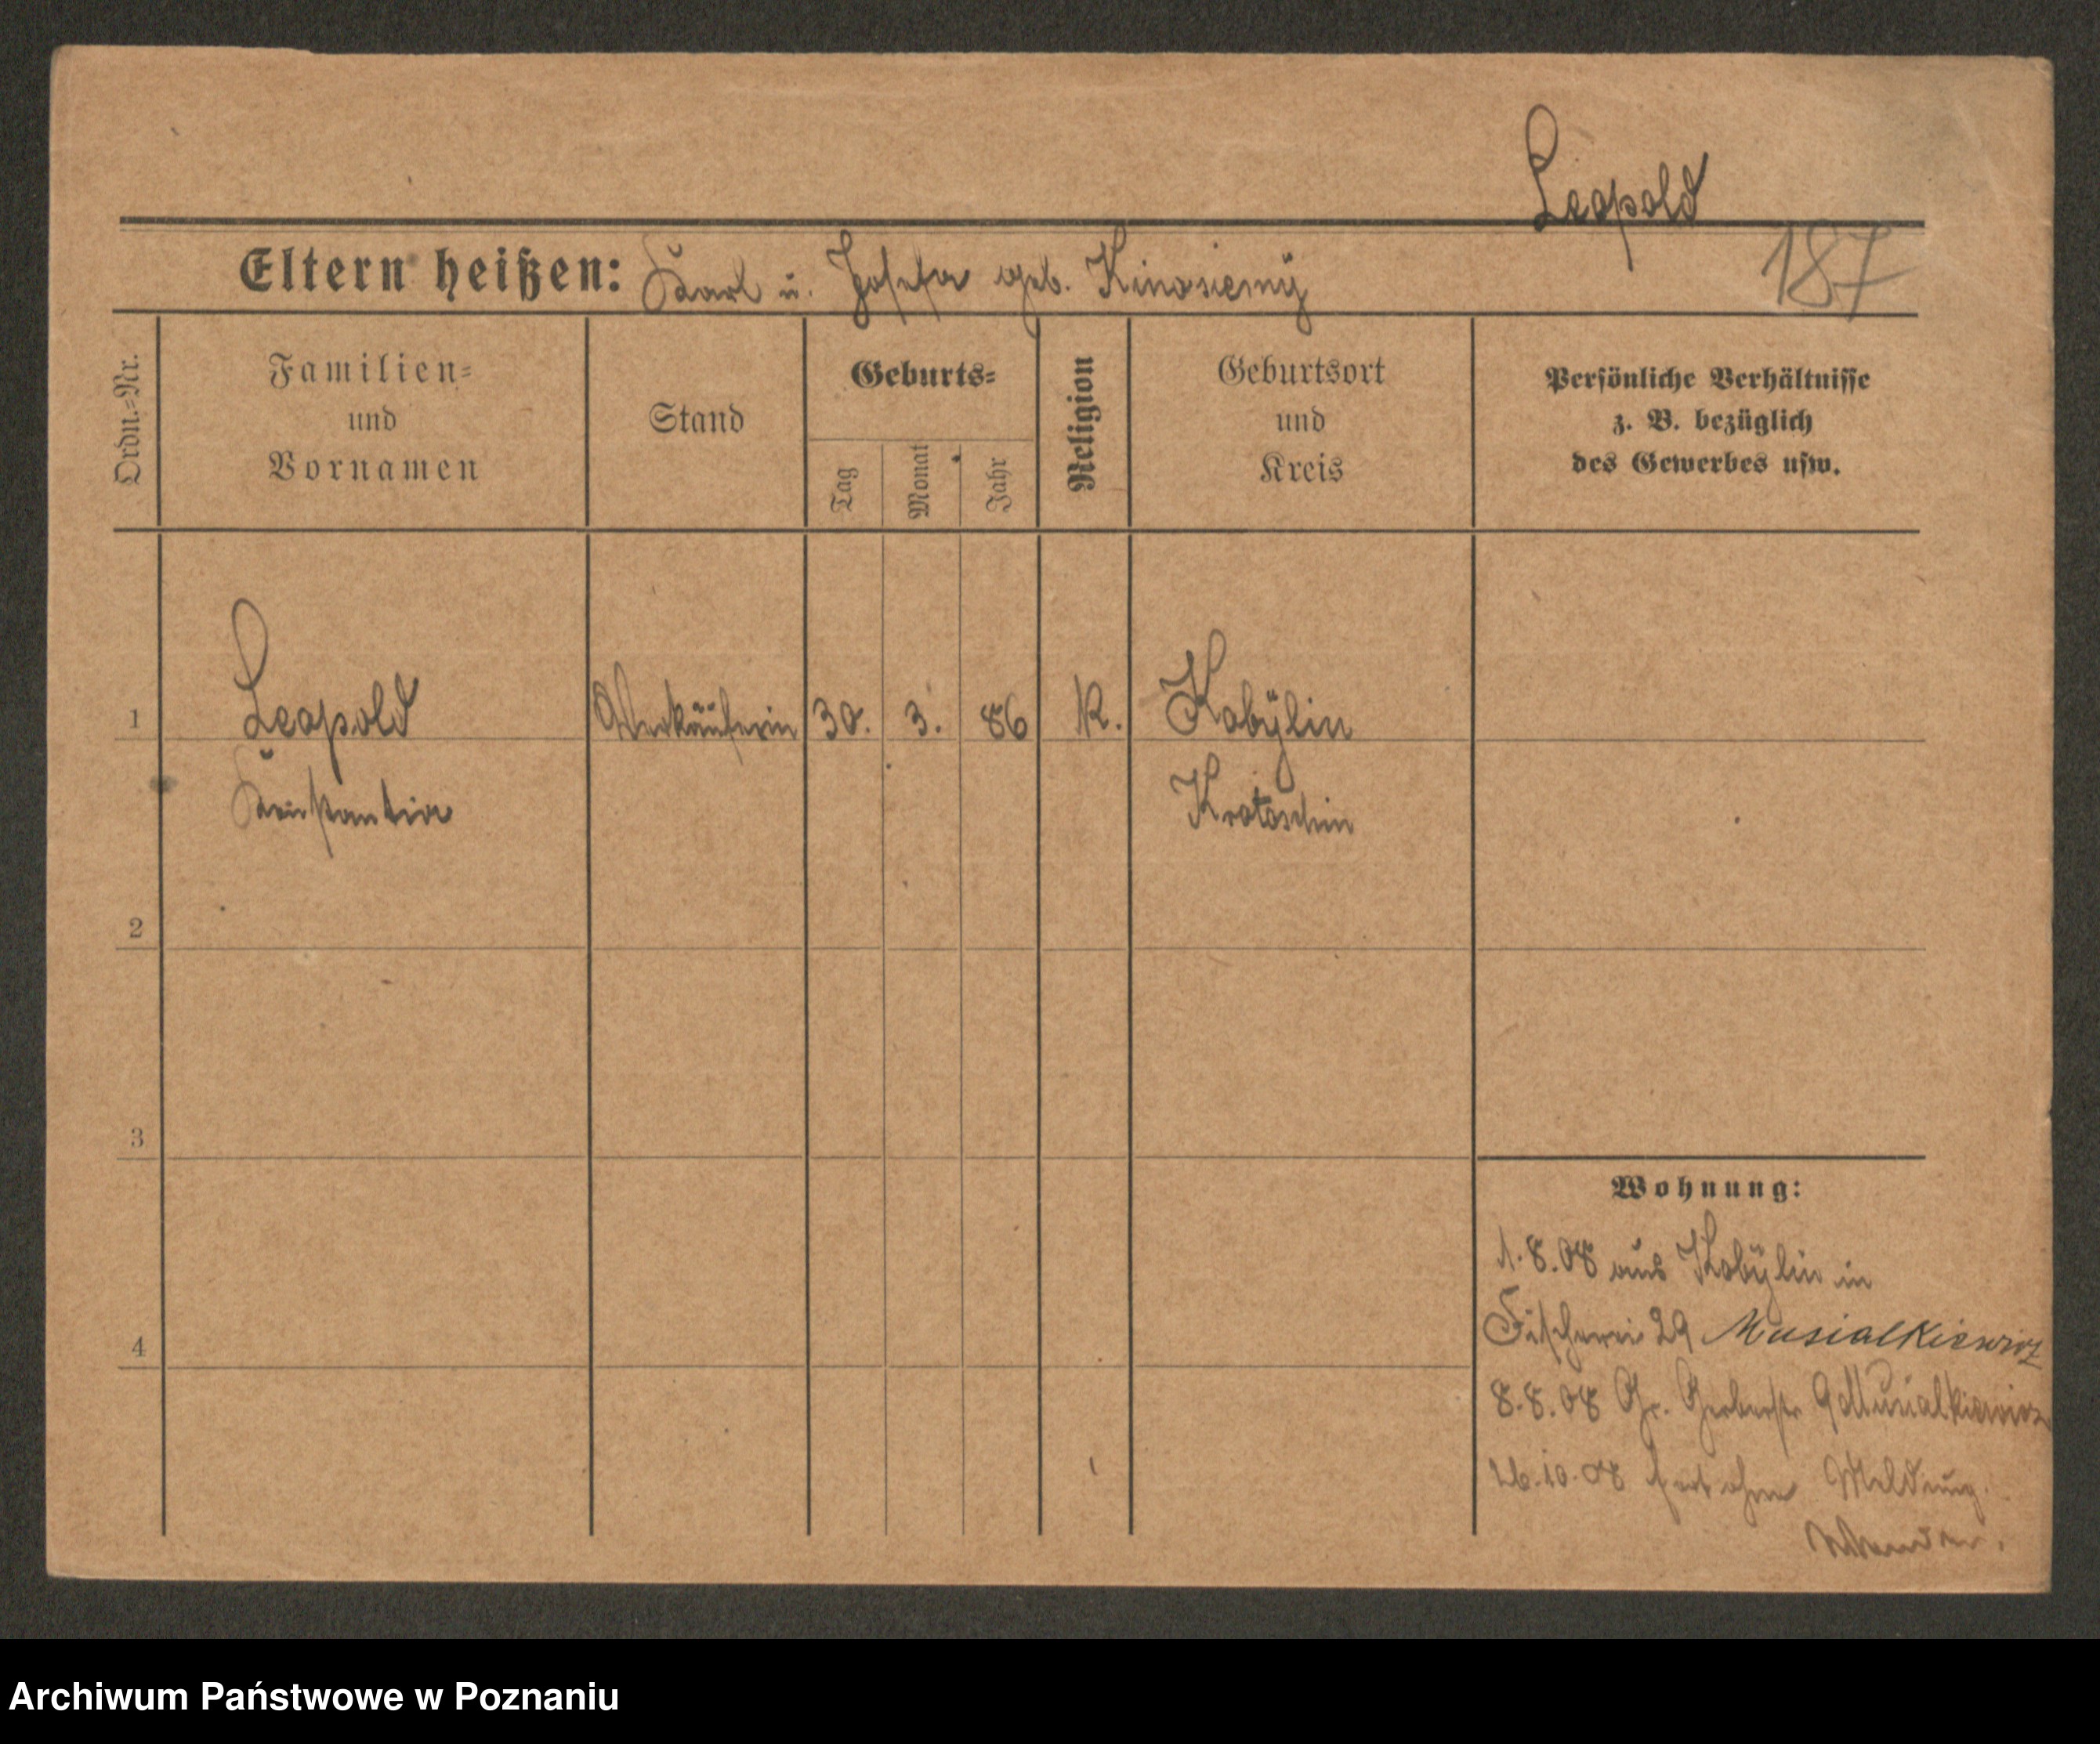 Leopold
187
Eltern heißen: Karl u. Josefa geb.
Ordn.=Nr.
Familien=
und
Vornamen
Stand
Geburts=
Tag
Monat
Jahr
Religion
Geburtsort
und
Kreis
Persönliche Verhältnisse
z. B. bezüglich
des Gewerbes usw.
1
Leopold
Verkäuferin
30.
3.
86
K.
Kobÿlin
Konstantia
Krotoschin
2
3
4
Wohnung:
1.8.08 aus Kobÿlin in
Fischerei 29 Musialkiewicz
8.8.08 Gr. Gerberstr 9 Musialkiewicz
26.10.08 fort ohne Meldung.
Archiwum Państwowe w Poznaniu